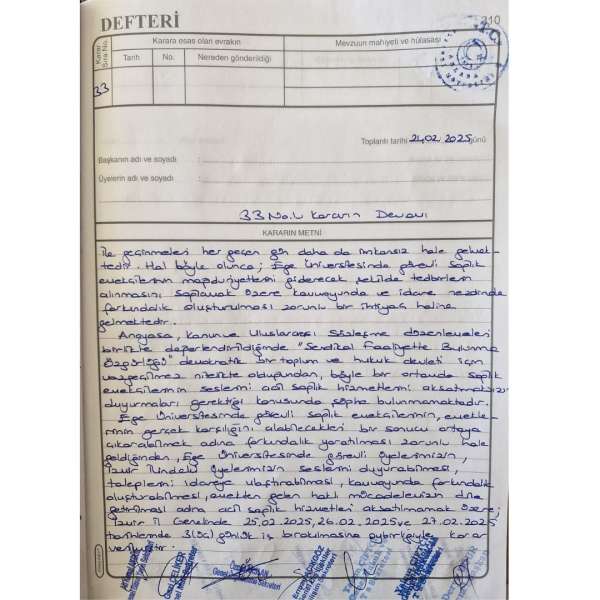 DEFTERİ
210
Karar Sıra No.
Karara esas olan evrakın
Mevzuun mahiyeti ve hülasası
Tarih No. Nereden gönderildiği
33
Toplantı tarihi 24.02.2025 günü
Başkanın adı ve soyadı :
Üyelerin adı ve soyadı :
33 No.lu Kararın Devamı
KARARIN METNİ
ile geçinmeleri her geçen gün daha da imkansız hale gelmek-
tedir. Hal böyle olunca; Ege Üniversitesinde görevli sağlık
emekçilerinin mağduriyetlerini giderecek şekilde tedbirlerin
alınmasını sağlamak üzere kamuoyunda ve idare nezdinde
farkındalık oluşturulması zorunlu bir ihtiyaç haline
gelmektedir.
Anayasa, Kanun ve Uluslararası Sözleşme düzenlemeleri
birlikte değerlendirildiğinde "Sendikal Faaliyette Bulunma
Özgürlüğü" demokratik bir toplum ve hukuk devleti için
vazgeçilmez nitelikte olduğundan, böyle bir ortamda sağlık
emekçilerinin seslerini acil sağlık hizmetlerini aksatmaksızın
duyurmaları gerektiği konusunda şüphe bulunmamaktadır.
Ege Üniversitesinde görevli sağlık emekçilerinin, emekle-
rinin gerçek karşılığını alabilecekleri bir sonucu ortaya
çıkarabilmek adına farkındalık yaratılması zorunlu hale
geldiğinden, Ege Üniversitesinde görevli üyelerimizin,
seslerini duyurabilmesi,
taleplerini idareye ulaştırabilmesi, kamuoyunda farkındalık
oluşturabilmesi, emekten gelen haklı mücadelemizin dile
getirilmesi adına acil sağlık hizmetleri aksatılmamak üzere;
İzmir İl Genelinde 25.02.2025, 26.02.2025 ve 27.02.2025
tarihlerinde 3(üç) günlük iş bırakılmasına oybirliğiyle karar
verilmiştir.